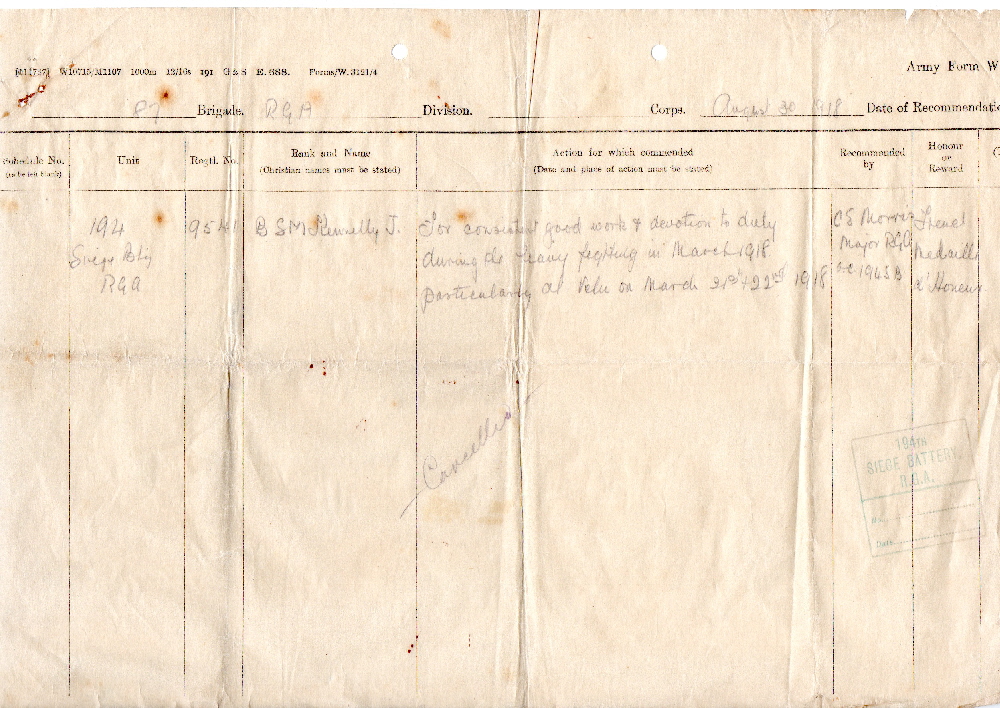 [11787] W16715/M1107 1000m 12/16s 191 G & S E. 688. Forms/W. 3121/4
Army Form W
87 Brigade. RGA Division. Corps. August 30 1918 Date of Recommendatio
Schedule No. (to be left blank)
Unit
Regtl. No.
Rank and Name
(Christian names must be stated)
Action for which commended
(Date and place of action must be stated)
Recommended by
Honour or Reward
194
Siege Bty
RGA
9541
B S M Kennelly J.
For consistent good work & devotion to duty
during the heavy fighting in March 1918
particularly at Velu on March 21st & 22nd 1918
CS Morris
Major RGA
OC 194 SB
French
Medaille
d'Honeur
Cancelled
194TH
SIEGE BATTERY,
R.G.A.
No.
Date